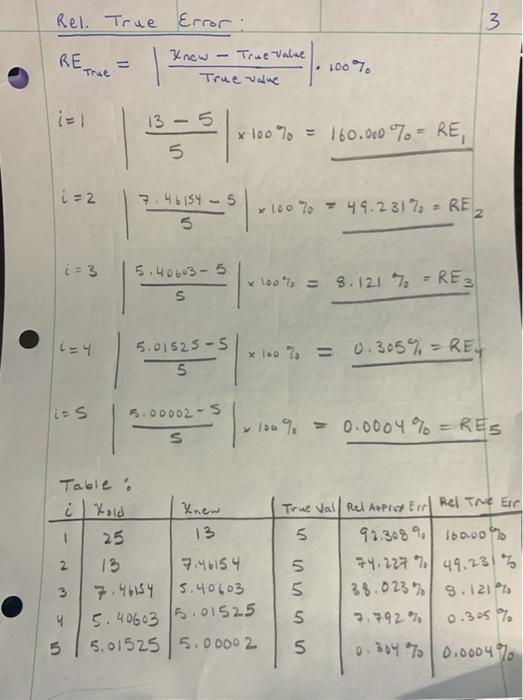 Rel. True Error: 3
RE True = | Xnew - True Value / True Value | · 100%
i=1 | 13 - 5 / 5 | x 100% = 160.000% = RE1
i=2 | 7.46154 - 5 / 5 | x 100% = 49.231% = RE2
i=3 | 5.40603 - 5 / 5 | x 100% = 8.121% = RE3
i=4 | 5.01525 - 5 / 5 | x 100% = 0.305% = RE4
i=5 | 5.00002 - 5 / 5 | x 100% = 0.0004% = RE5
Table:
i | Xold | Xnew | True Val | Rel Approx Err | Rel True Err
1 | 25 | 13 | 5 | 92.308% | 160.00%
2 | 13 | 7.46154 | 5 | 74.227% | 49.231%
3 | 7.46154 | 5.40603 | 5 | 38.023% | 8.121%
4 | 5.40603 | 5.01525 | 5 | 7.792% | 0.305%
5 | 5.01525 | 5.00002 | 5 | 0.304% | 0.0004%